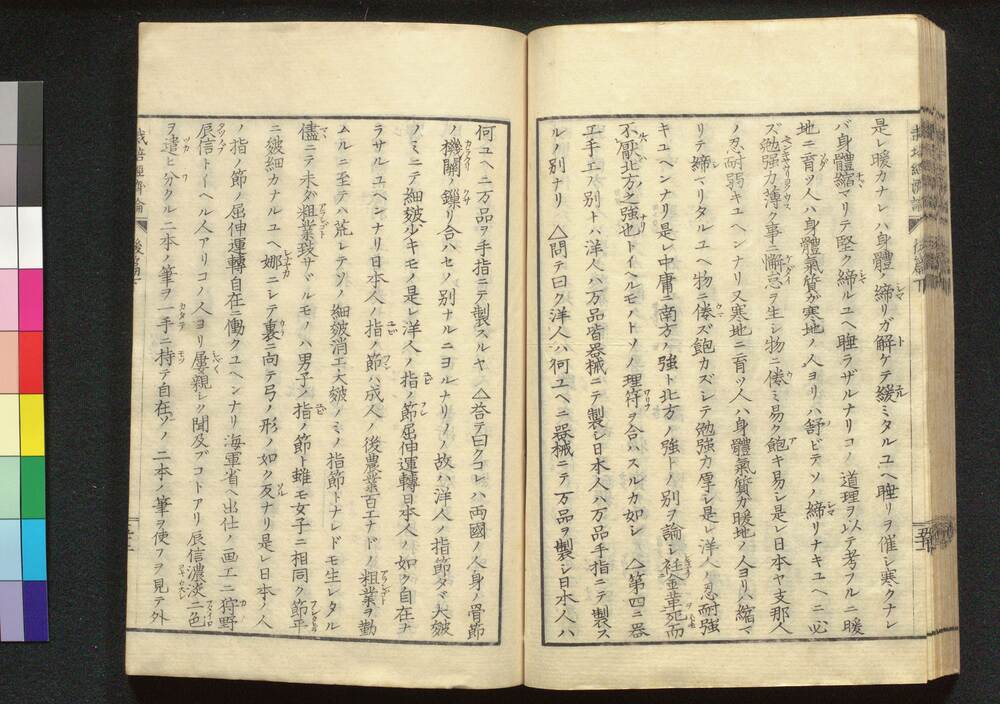 是レ暖カナレハ身體ノ締リガ解ケテ緩ミタルユヘ睡リヲ催シ寒クナレ
バ身體縮マリテ堅ク締ルユヘ睡ラザルナリコノ道理ヲ以テ考フルニ暖
地ニ育ツ人ハ身體氣質ガ寒地ノ人ヨリハ舒ビテソノ締リナキユヘニ必
ズ勉强力薄ク事ニ懈怠ヲ生シ物ニ倦ミ易ク飽キ易シ是レ日本ヤ支那人
ノ忍耐弱キユヘンナリ又寒地ニ育ツ人ハ身體氣質ガ暖地ノ人ヨリハ縮マ
リテ締マリタルユヘ物ニ倦ズ飽カズシテ勉強力厚シ是レ洋人ノ忍耐強
キユヘンナリ是レ中庸ニ南方ノ強ト北方ノ強トノ別ヲ論シ衽金革死而
不厭北方之強也トイヘルモノトソノ理符ヲ合ハスルカ如シ △第四ニ器
工手工ノ別トハ洋人ハ万品皆器械ニテ製シ日本人ハ万品手指ニテ製ス
ルノ別ナリ △問テ曰ク洋人ハ何ユヘニ器械ニテ万品ヲ製シ日本人ハ
何ユヘニ万品ヲ手指ニテ製スルヤ △荅テ曰クコレハ両國ノ人身ノ骨節
ノ機關ノ鏁リ合ハセノ別ナルニヨルナリソノ故ハ洋人ノ指節ダベ大皴
ノミニテ細皴少キモノ是レ洋人ノ指ノ節屈伸運轉日本人ノ如ク自在ナ
ラサルユヘンナリ日本人ノ指ノ節ハ成人ノ後農業百工ナドノ粗業ヲ勤
ムルニ至テハ荒レテソノ細皴消エ大皴ノミノ指節トナレドモ生レタル
儘ニテ未ダ粗業致サヾルモノハ男子ノ指ノ節ト雖モ女子ニ相同ク節平
ニ皴細カナルユヘ娜ニシテ裏ニ向テ弓ノ形ノ如ク反ナリ是レ日本ノ人
ノ指ノ節ノ屈伸運轉自在ニ働クユヘンナリ海軍省ヘ出仕ノ画工ニ狩野
辰信トイヘル人アリコノ人ヨリ屢親シク聞及ブコトアリ辰信濃淡二色
ヲ遣ヒ分クル二本ノ筆ヲ一手ニ持テ自在ソノ二本ノ筆ヲ使フヲ見テ外
栽培經濟論 後篇下